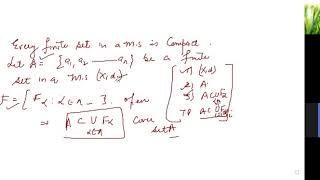 Every finite set in a m.s is Compact.
Let A = {a₁, a₂ ——— aₙ} be a finite
set in a m.s (X,d)
F = {Fα : α ∈ Λ } open
⇒ A ⊂ ∪ Fα Cover
α∈Λ
set A
1) (X,d)
2) A
3) A ⊂ ∪ Fα
TP A ⊂